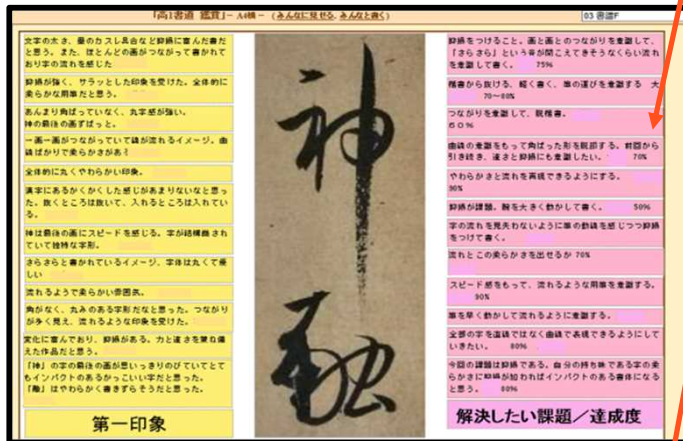 「高1書道 鑑賞」- A4横 - (みんなに見せる、みんなと書く)
03 書道F
文字の太さ、墨のカスレ具合など抑揚に富んだ書だ
と思う。また、ほとんどの画がつながって書かれて
おり字の流れを感じた
抑揚が強く、サラッとした印象を受けた。全体的に
柔らかな用筆だと思う。
あんまり角ばっていなく、丸字感が強い。
神の最後の画ずばっと。
一画一画がつながっていて線が流れるイメージ。曲
線ばかりで柔らかさがある
全体的に丸くやわらかい印象。
漢字にあるかくかくした感じがあまりないなと思っ
た。抜くところは抜いて、入れるところは入れてい
る。
神は最後の画にスピードを感じる。字が結構崩され
ていて独特な字形。
さらさらと書かれているイメージ、字体は丸くて優
しい
流れるようで柔らかい雰囲気。
角がなく、丸みのある字形だなと思った。つながり
が多く見え、流れるような印象を受けた。
変化に富んでおり、抑揚がある。力と速さを兼ね備
えた作品だと思う。
「神」の字の最後の画が思いっきりのびていてとて
もインパクトのあるかっこいい字だと思った。
「融」はやわらかく書きずらそうだと思った。
第一印象
神
融
抑揚をつけること。画と画とのつながりを意識して、
「さらさら」という音が聞こえてきそうなくらい流れ
を意識して書く。 75%
楷書から抜ける、軽く書く、筆の運びを意識する 大
70～80%
つながりを意識して、脱楷書。
６０％
曲線の意識をもって角ばった形を脱却する。前回から
引き続き、速さと抑揚にも意識したい。 70%
やわらかさと流れを再現できるようにする。
90%
抑揚が課題。腕を大きく動かして書く。 50%
字の流れを見失わないように筆の動線を感じつつ抑揚
をつけて書く。
流れとこの柔らかさを出せるか 70%
スピード感をもって、流れるような用筆を意識する。
90%
筆を早く動かして流れるように意識する。
全部の字を直線ではなく曲線で表現できるようにして
いきたい。 80%
今回の課題は抑揚である。自分の持ち味である字の柔
らかさに抑揚が加わればインパクトのある書体になる
と思う。 80%
解決したい課題／達成度